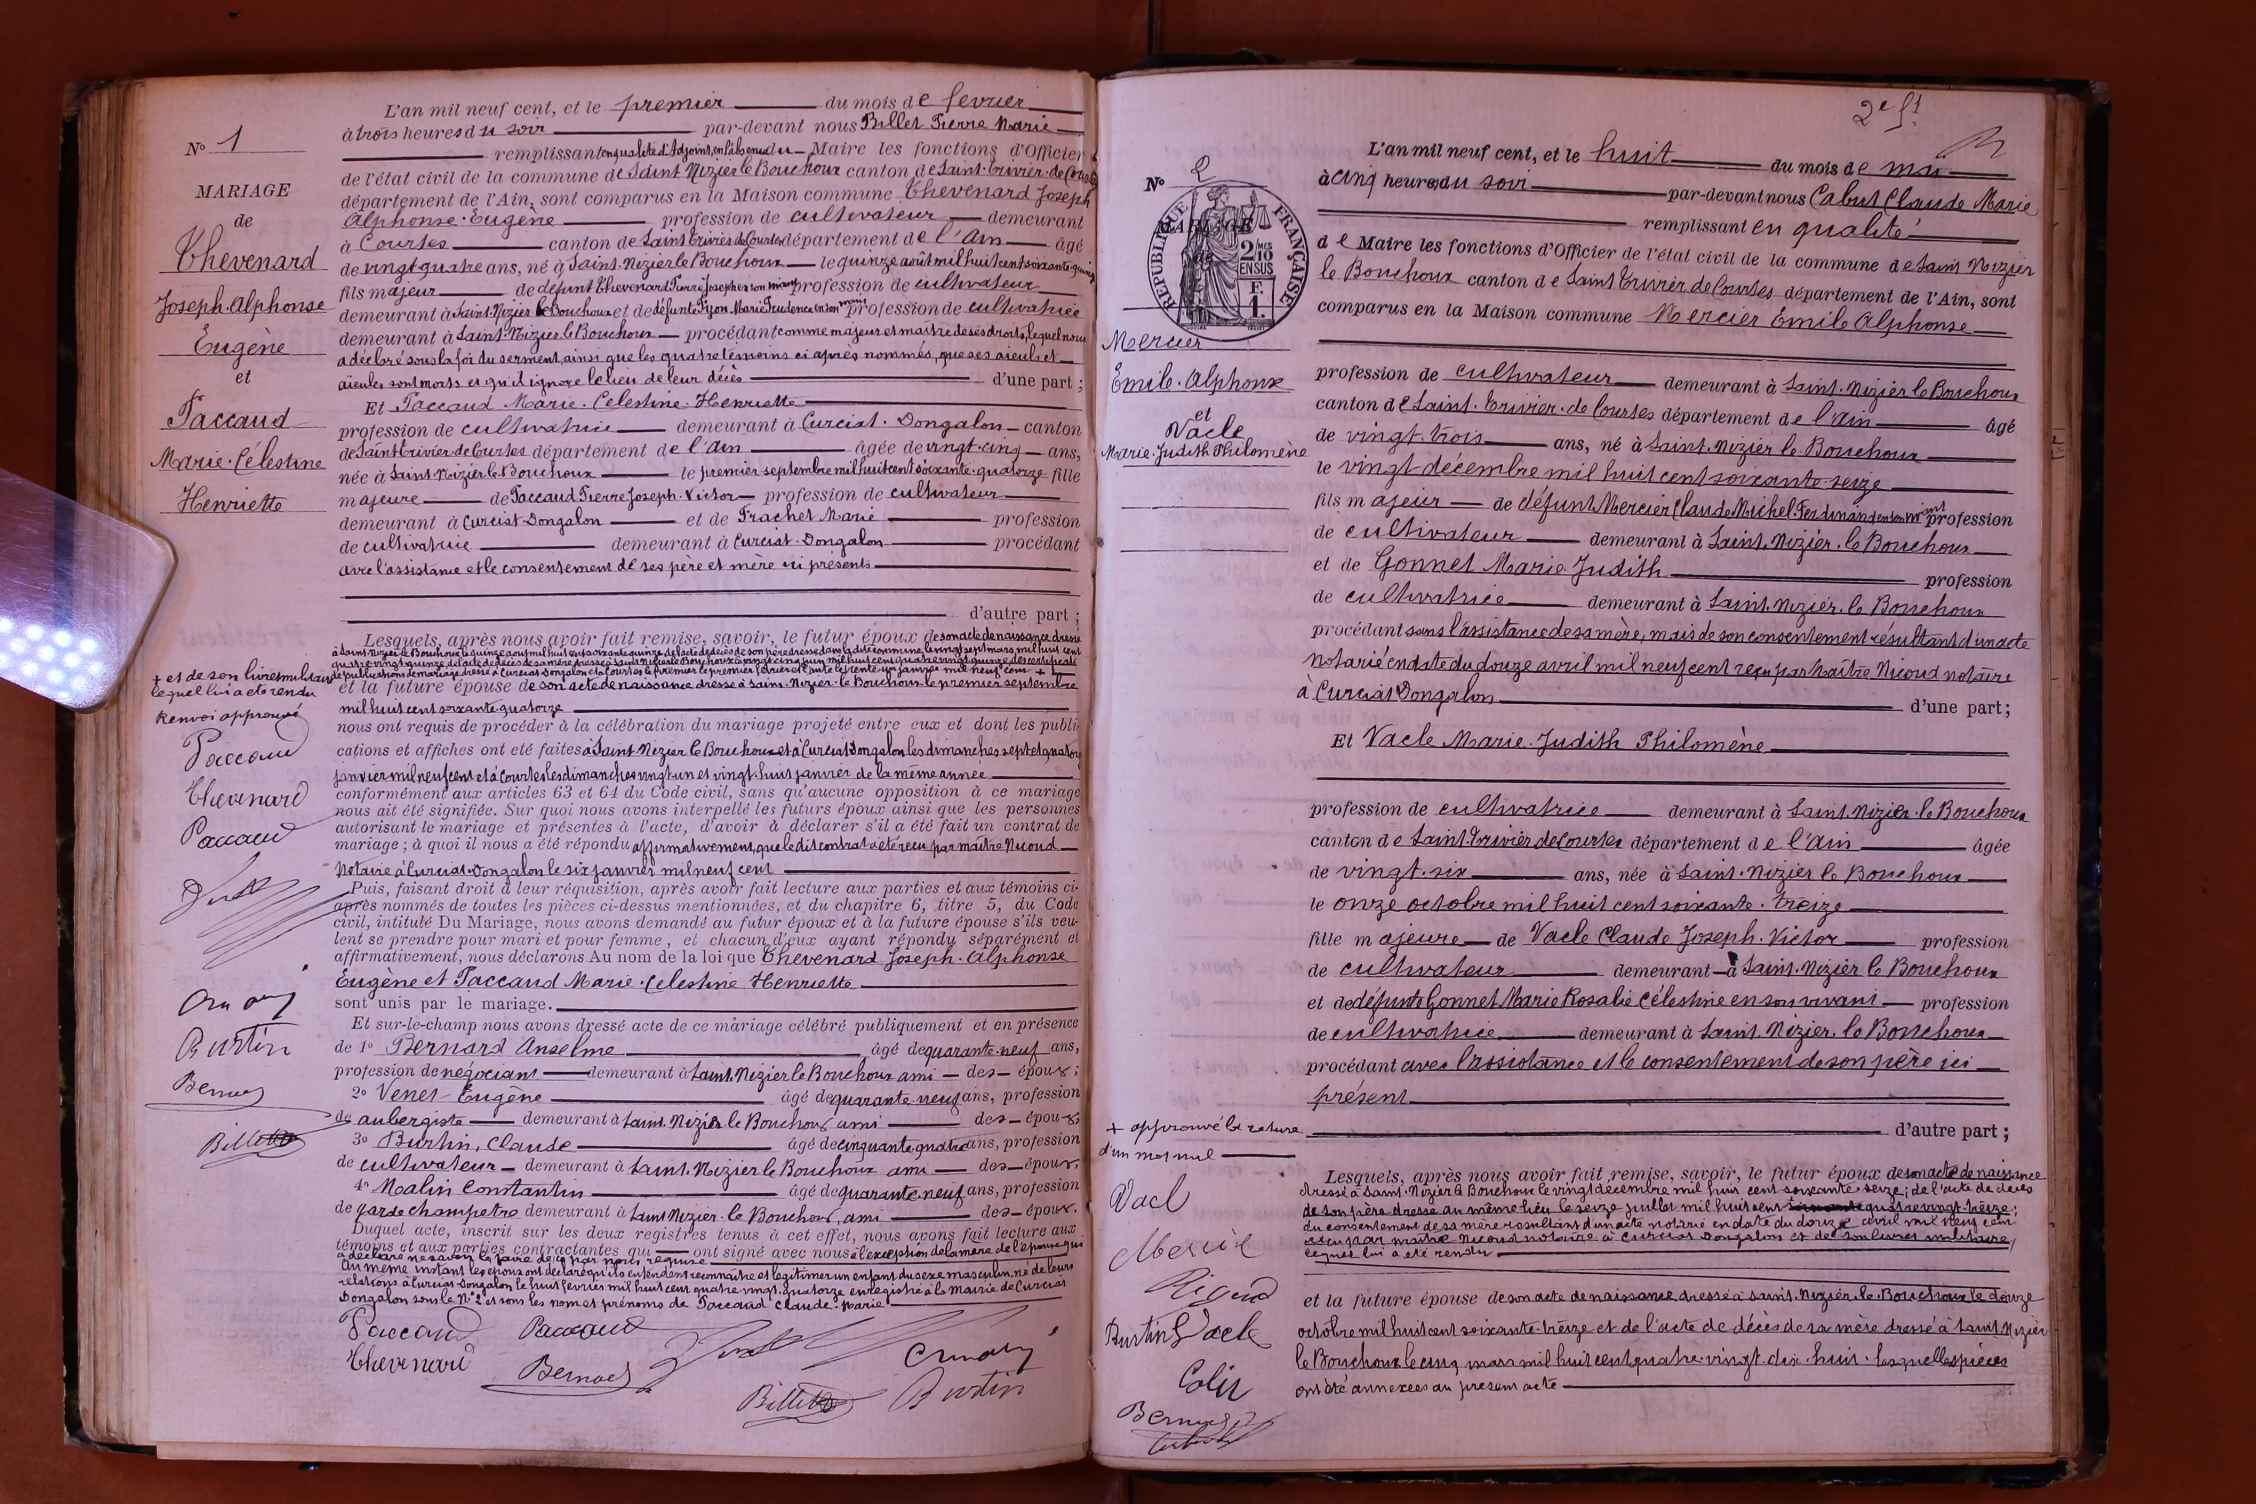 L'an mil neuf cent, et le premier du mois de fevrier
à trois heures du soir par-devant nous Billet Pierre Marie
remplissant en qualité d'Adjoint, en l'absence du Maire les fonctions d'Officier
de l'état civil de la commune de Saint Nizier le Bouchoux canton de Saint-Trivier-de-Courtes
département de l'Ain, sont comparus en la Maison commune Thevenard Joseph
Alphonse-Eugène profession de cultivateur demeurant
à Courtes canton de Saint Trivier de Courtes département de l'Ain âgé
de vingt quatre ans, né à Saint-Nizier le Bouchoux le quinze août mil huit cent soixante quinze
fils majeur de défunt Thevenard Pierre Joseph en son vivant profession de cultivateur
demeurant à Saint-Nizier le Bouchoux et de défunte Pijon Marie Prudence en son vivant profession de cultivatrice
demeurant à Saint-Nizier le Bouchoux procédant comme majeur et maître de ses droits, lequel nous
a déclaré sous la foi du serment, ainsi que les quatre témoins ci après nommés, que ses aïeuls et
aïeules sont morts et qu'il ignore le lieu de leur décès d'une part ;
Et Paccaud Marie-Celestine-Henriette
profession de cultivatrice demeurant à Curciat-Dongalon canton
de Saint Trivier de Courtes département de l'Ain âgée de vingt-cinq ans,
née à Saint-Nizier le Bouchoux le premier septembre mil huit cent soixante-quatorze fille
majeure de Paccaud Pierre Joseph-Victor profession de cultivateur
demeurant à Curciat-Dongalon et de Frachet Marie profession
de cultivatrice demeurant à Curciat-Dongalon procédant
avec l'assistance et le consentement de ses père et mère ici présents
d'autre part ;
Lesquels, après nous avoir fait remise, savoir, le futur époux de son acte de naissance dressé
à Saint-Nizier le Bouchoux le quinze aout mil huit cent soixante quinze de l'acte de décès de son père dressé dans la dite commune le vingt sept mars mil huit cent
quatre vingt quinze de l'acte de décès de sa mère dressé à Saint Nizier le Bouchoux le vingt cinq juin mil huit cent quatre vingt quinze des certificats
de publications de mariage dressé à Curciat Dongalon et à Courtes le premier le premier fevrier et l'autre le trente un janvier mil neuf cent +
et la future épouse de son acte de naissance dressé à Saint-Nizier-le-Bouchoux le premier septembre
mil huit cent soixante quatorze
nous ont requis de procéder à la célébration du mariage projeté entre eux et dont les publi-
cations et affiches ont été faites à Saint-Nizier le Bouchoux et à Curciat Dongalon les dimanches sept et quatorze
janvier mil neuf cent et à Courtes les dimanches vingt un et vingt-huit janvier de la même année
conformément aux articles 63 et 64 du Code civil, sans qu'aucune opposition à ce mariage
nous ait été signifiée. Sur quoi nous avons interpellé les futurs époux ainsi que les personnes
autorisant le mariage et présentes à l'acte, d'avoir à déclarer s'il a été fait un contrat de
mariage ; à quoi il nous a été répondu affirmativement, que le dit contrat a été reçu par maître Nicoud
Notaire à Curciat-Dongalon le six janvier mil neuf cent
Puis, faisant droit à leur réquisition, après avoir fait lecture aux parties et aux témoins ci-
après nommés de toutes les pièces ci-dessus mentionnées, et du chapitre 6, titre 5, du Code
civil, intitulé Du Mariage, nous avons demandé au futur époux et à la future épouse s'ils veu-
lent se prendre pour mari et pour femme, et chacun d'eux ayant répondu séparément et
affirmativement, nous déclarons Au nom de la loi que Thevenard Joseph-Alphonse
Eugène et Paccaud Marie-Celestine Henriette
sont unis par le mariage.
Et sur-le-champ nous avons dressé acte de ce mariage célébré publiquement et en présence
de 1° Bernard Anselme âgé de quarante-neuf ans,
profession de négociant demeurant à Saint-Nizier le Bouchoux ami des époux ;
2° Venet Eugène âgé de quarante neuf ans, profession
de aubergiste demeurant à Saint-Nizier le Bouchoux ami des époux
3° Burtin, Claude âgé de cinquante quatre ans, profession
de cultivateur demeurant à Saint-Nizier le Bouchoux ami des époux.
4° Malin Constantin âgé de quarante-neuf ans, profession
de garde champetre demeurant à Saint Nizier-le Bouchoux, ami des époux.
Duquel acte, inscrit sur les deux registres tenus à cet effet, nous avons fait lecture aux
témoins et aux parties contractantes qui ont signé avec nous à l'exception de la mère de l'épouse qui
a déclaré ne savoir le faire de ce par nous requise
Au même instant les epoux ont déclaré qu'ils entendent reconnaître et légitimer un enfant du sexe masculin, né de leurs
relations à Curciat-Dongalon le huit fevrier mil huit cent quatre vingt-quatorze enregistré à la Mairie de Curciat
Dongalon sous le N° 2 et sous les nom et prénoms de Paccaud Claude-Marie
Paccaud Paccaud
Thevenard Bernard
Billet Burtin
N° 1
MARIAGE
de
Thevenard
Joseph-Alphonse
Eugène
et
Paccaud
Marie-Célestine
Henriette
+ et de son livret militaire
lequel lui a été rendu
Renvoi approuvé
Paccaud
Thevenard
Paccaud
Burtin
Bernard
Billet
2e ft
L'an mil neuf cent, et le huit du mois de mai
à cinq heures du soir par-devant nous Cabut Claude Marie
remplissant en qualité
de Maire les fonctions d'Officier de l'état civil de la commune de Saint Nizier
le Bouchoux canton de Saint Trivier de Courtes département de l'Ain, sont
comparus en la Maison commune Mercier Emile Alphonse
profession de cultivateur demeurant à Saint-Nizier le Bouchoux
canton de Saint-Trivier-de Courtes département de l'Ain âgé
de vingt-trois ans, né à Saint-Nizier le Bouchoux
le vingt décembre mil huit cent soixante-seize
fils majeur de défunt Mercier Claude Michel-Ferdinand en son vivant profession
de cultivateur demeurant à Saint-Nizier-le Bouchoux
et de Gonnet Marie Judith profession
de cultivatrice demeurant à Saint-Nizier-le Bouchoux
procédant sans l'assistance de sa mère, mais de son consentement résultant d'un acte
notarié en date du douze avril mil neuf cent reçu par Maître Nicoud notaire
à Curciat Dongalon d'une part ;
Et Vacle Marie-Judith Philomène
profession de cultivatrice demeurant à Saint Nizier-le Bouchoux
canton de Saint-Trivier de Courtes département de l'Ain âgée
de vingt-six ans, née à Saint-Nizier le Bouchoux
le onze octobre mil huit cent soixante-treize
fille majeure de Vacle Claude Joseph-Victor profession
de cultivateur demeurant à Saint-Nizier le Bouchoux
et de défunte Gonnet Marie Rosalie Célestine en son vivant profession
de cultivatrice demeurant à Saint-Nizier-le Bouchoux
procédant avec l'assistance et le consentement de son père ici
présent
d'autre part ;
Lesquels, après nous avoir fait remise, savoir, le futur époux de son acte de naissance
dressé à Saint-Nizier le Bouchoux le vingt décembre mil huit cent soixante-seize ; de l'acte de décès
de son père dressé au même lieu le seize juillet mil huit cent quatre vingt-treize ;
du consentement de sa mère résultant d'un acte notarié en date du douze avril mil neuf cent
reçu par maître Nicoud notaire à Curciat Dongalon et de son livret militaire,
lequel lui a été rendu
et la future épouse de son acte de naissance dressé à Saint-Nizier-le-Bouchoux le douze
octobre mil huit cent soixante-treize et de l'acte de décès de sa mère dressé à Saint-Nizier
le Bouchoux le cinq mars mil huit cent quatre-vingt dix-huit. Lesquelles pièces
ont été annexées au présent acte
N° 2
MARIAGE
de
RÉPUBLIQUE FRANÇAISE
2/10 EN SUS
F.
1.
Mercier
Emile-Alphonse
et
Vacle
Marie-Judith Philomène
+ approuvé la rature
d'un mot nul
Vacle
Mercier
Rigaud
Burtin Vacle
Colin
Bernard